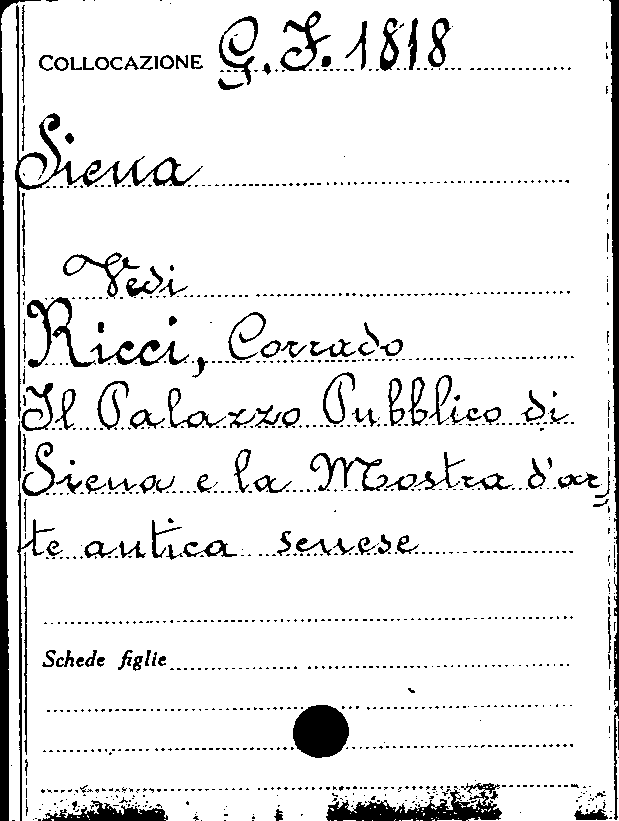 COLLOCAZIONE G. F. 1818
Siena
Vedi
Ricci, Corrado
Il Palazzo Pubblico di
Siena e la Mostra d'ar=
te antica senese
Schede figlie